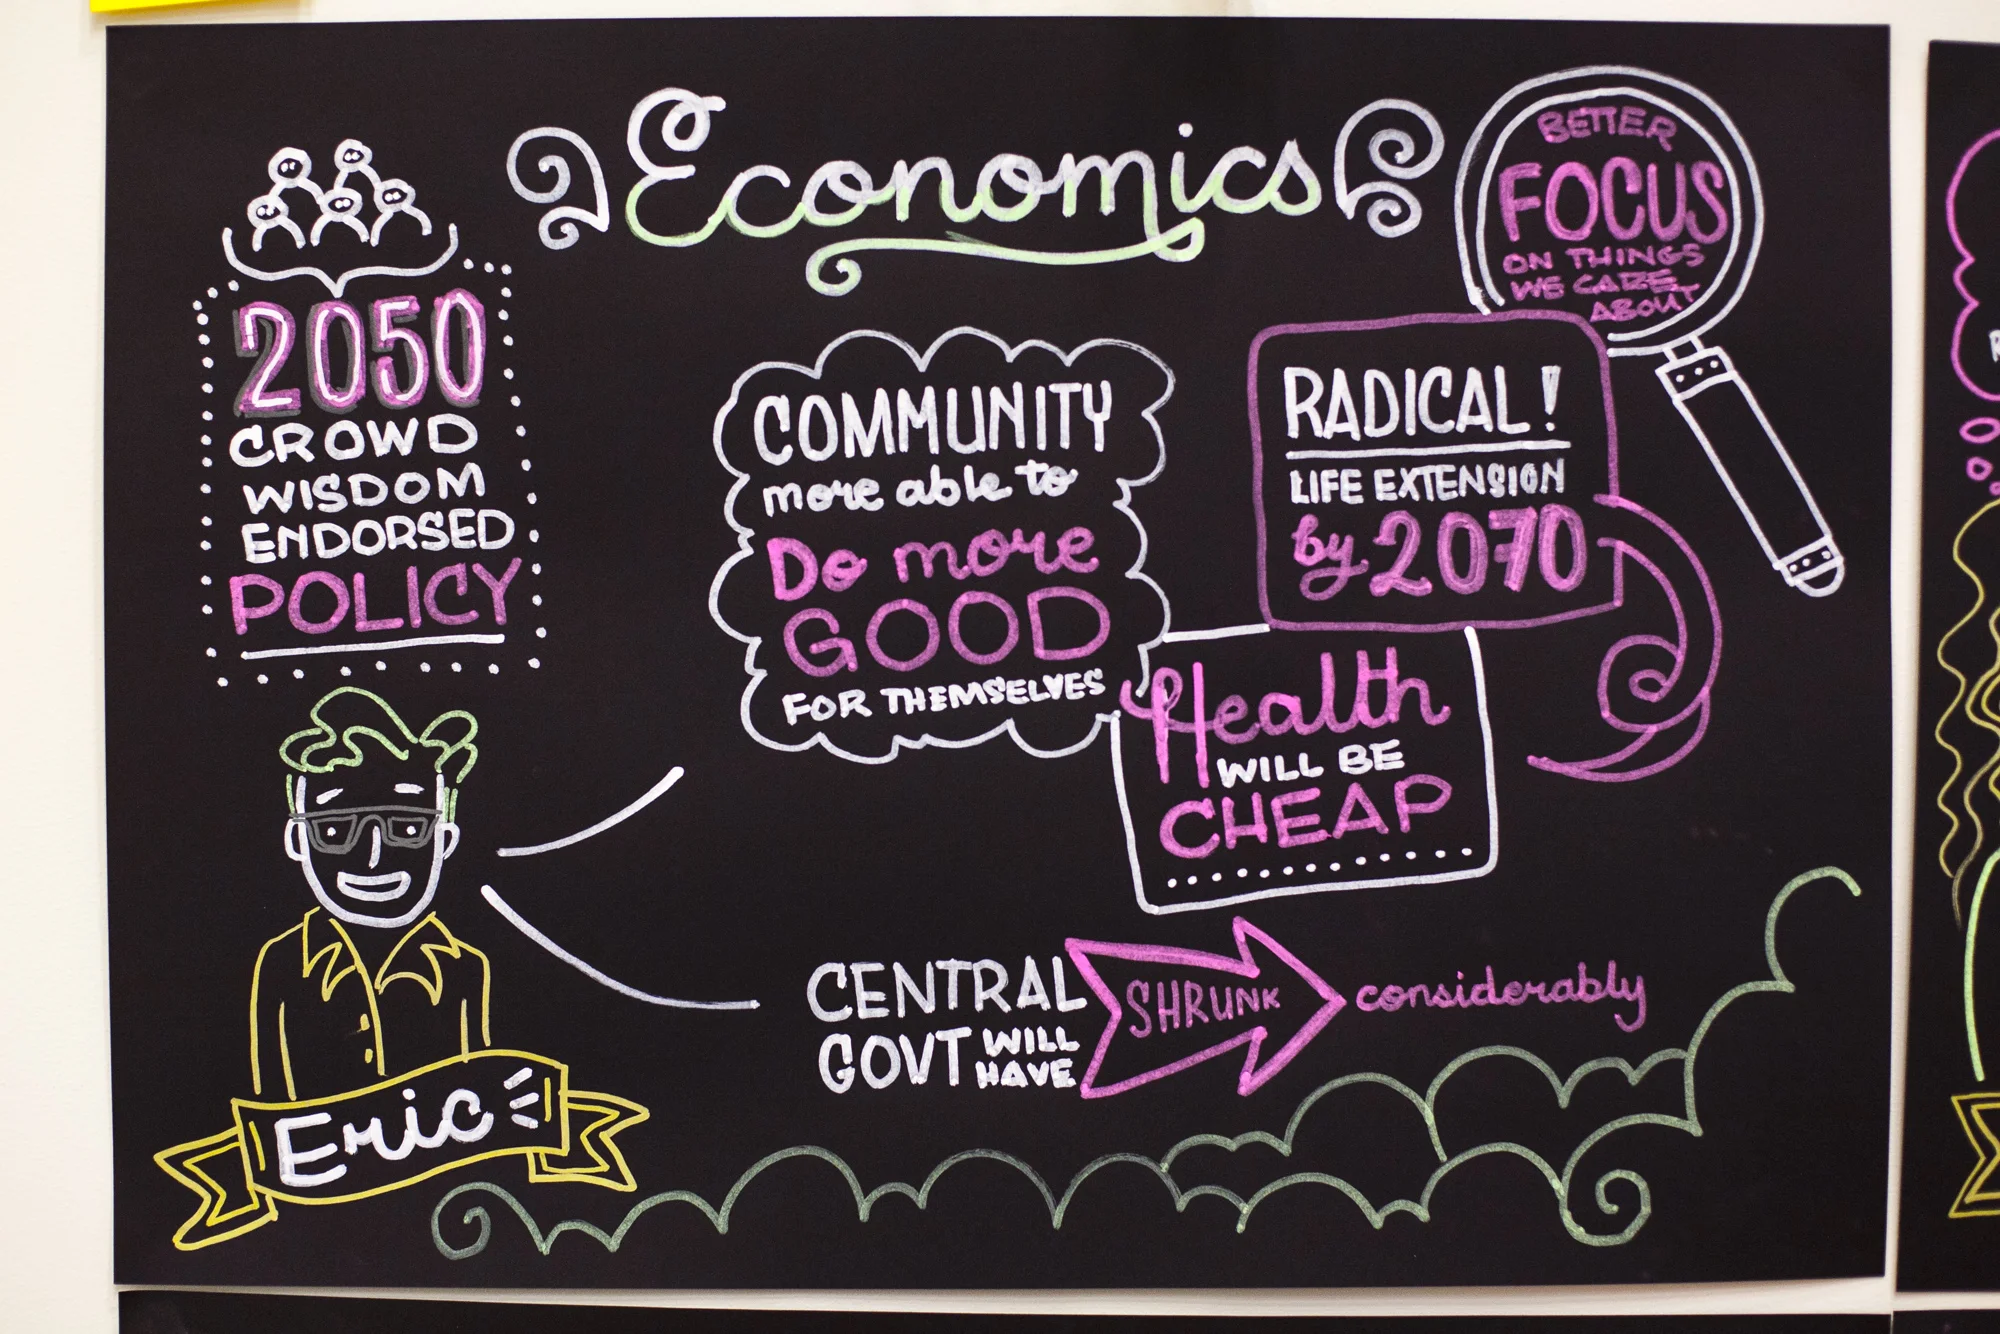 Economics
BETTER
FOCUS
ON THINGS
WE CARE
ABOUT
2050
CROWD
WISDOM
ENDORSED
POLICY
COMMUNITY
more able to
Do more
GOOD
FOR THEMSELVES
RADICAL!
LIFE EXTENSION
by 2070
Health
WILL BE
CHEAP
CENTRAL
GOVT WILL
HAVE
SHRUNK
considerably
Eric